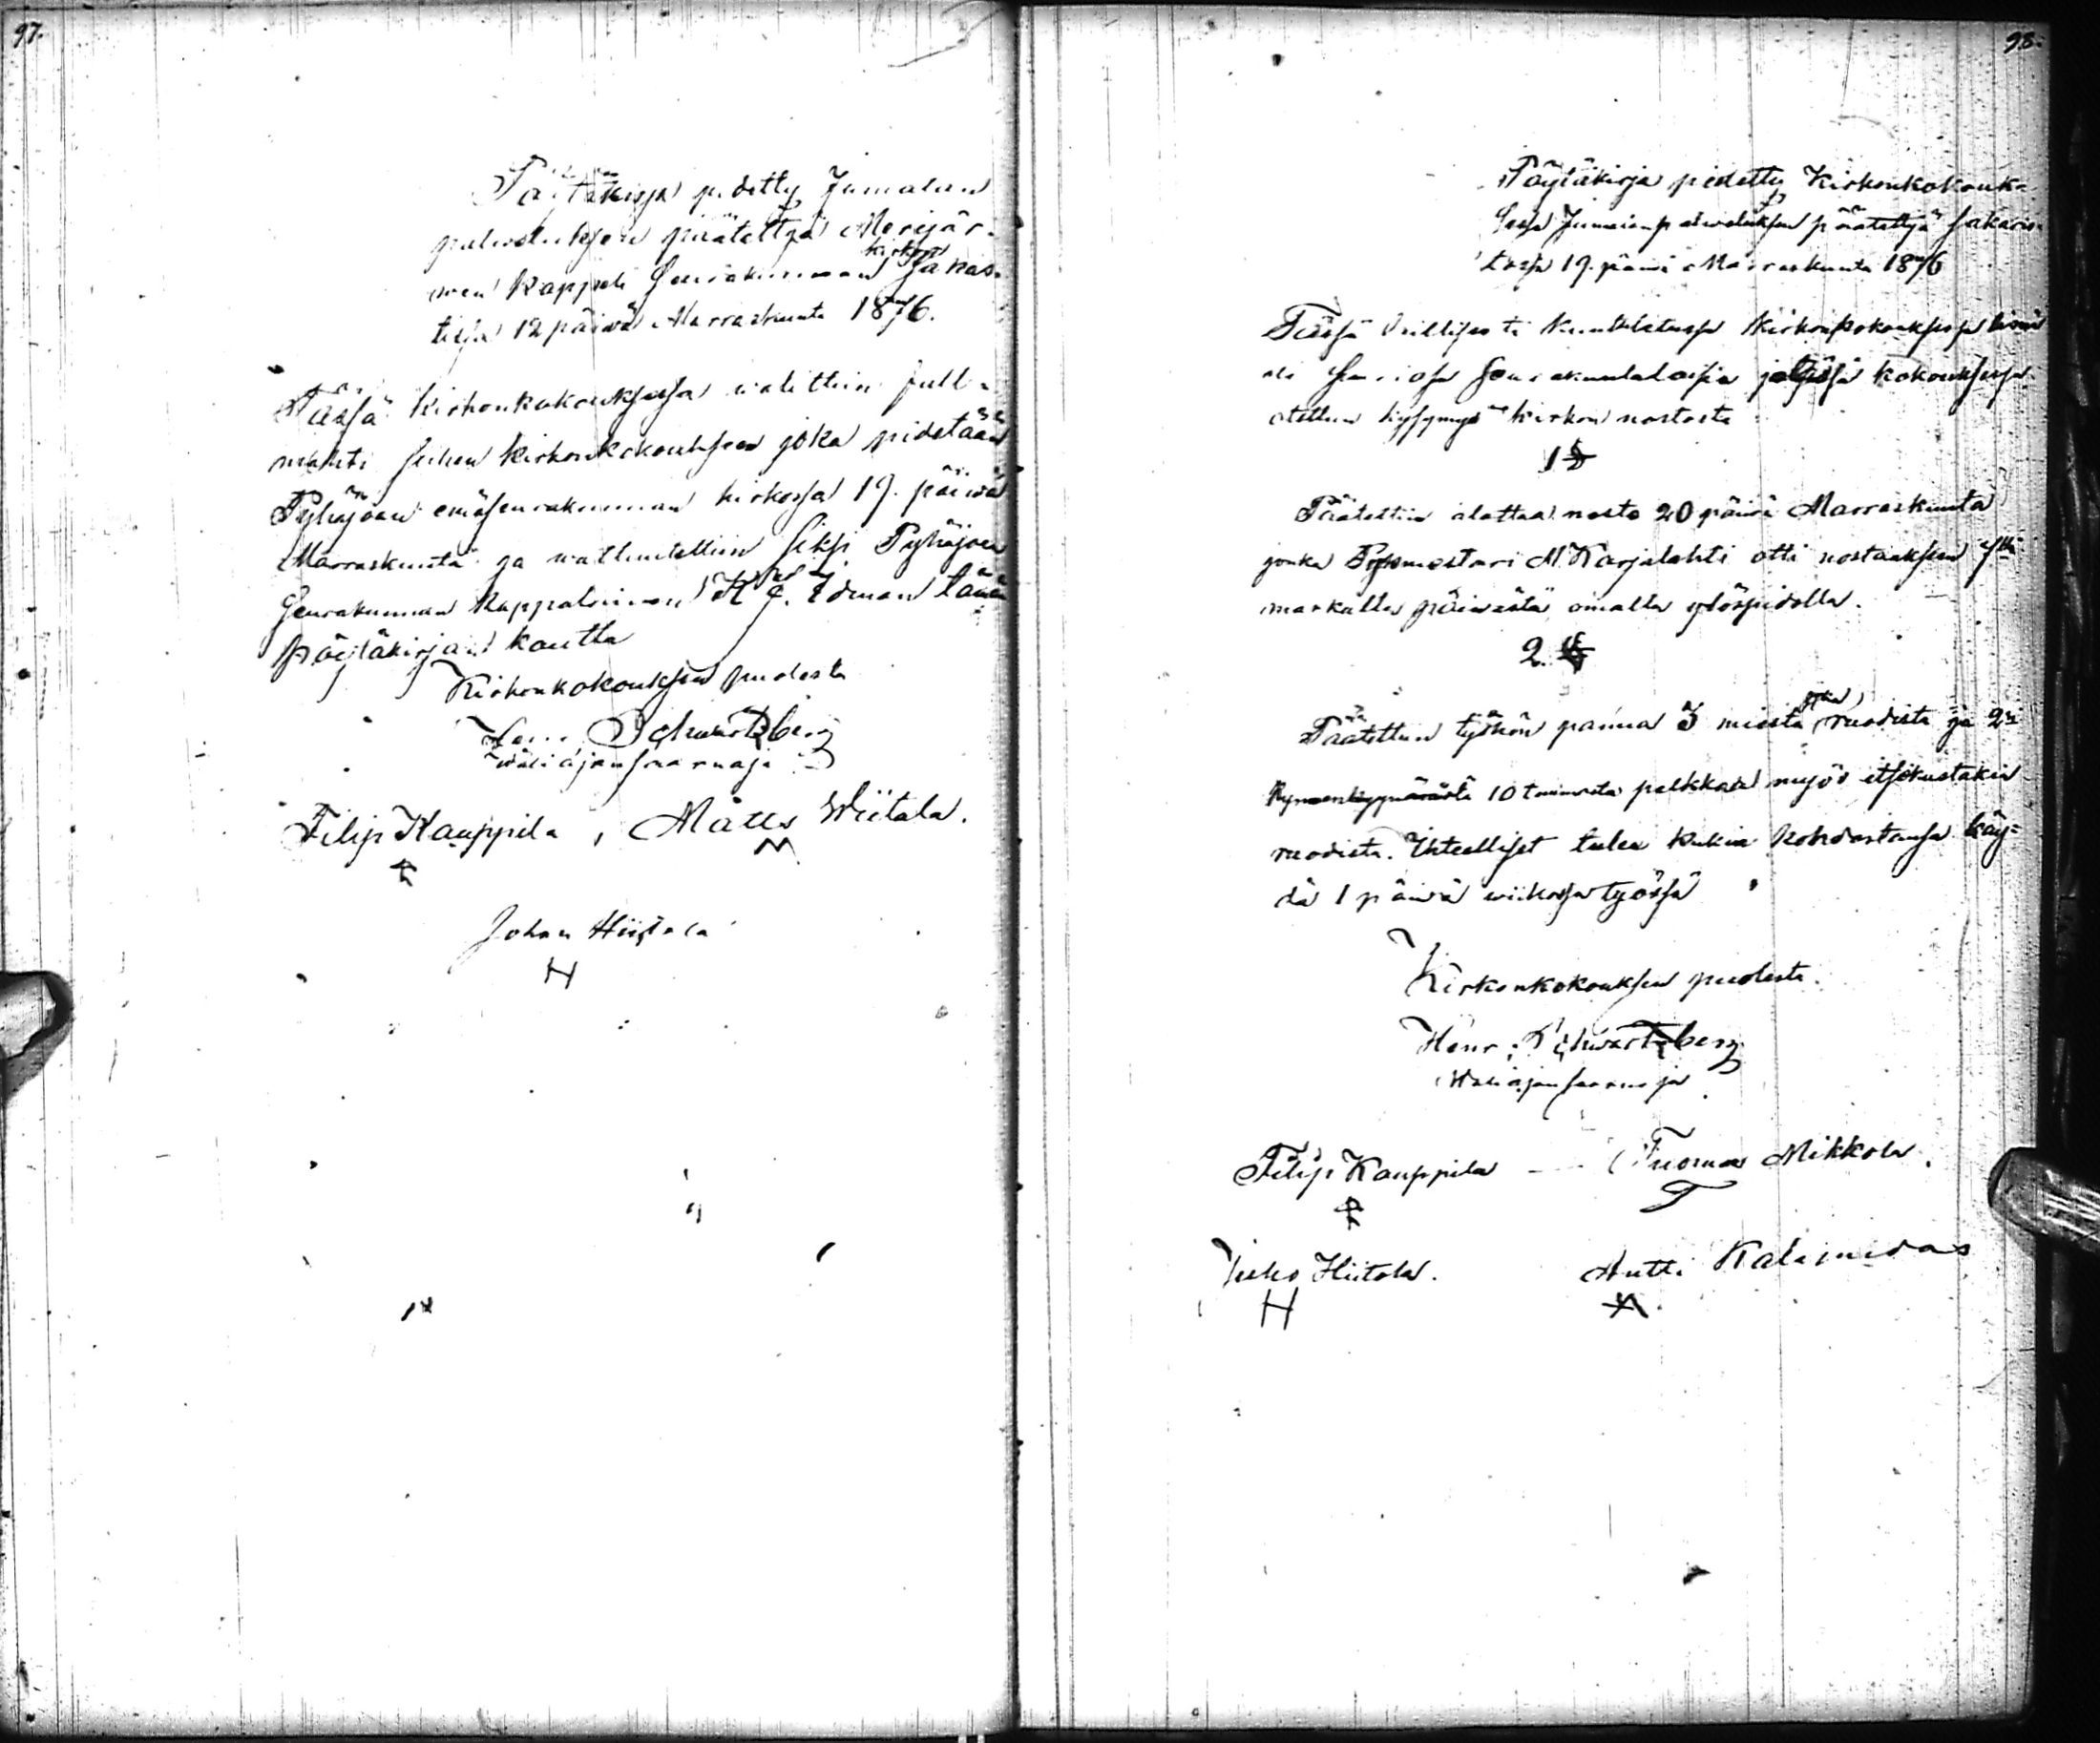 97.
Pöytäkirja pidetty Jumalan
palweluksen päätettyä Merijär-
wen Kappeli Seurakunnan kirkon Sakas-
tissa 12 päiwä Marraskuuta 1876.
Tässä kirkonkokouksessa walittiin full-
mahti siihen kirkonkokoukseen joka pidetään
Pyhäjoen emäseurakunnan kirkossa 19. päiwä
Marraskuuta ja waltuutettiin siksi Pyhäjoen
Seurakunnan Kappalainen K J. Idman tämän
pöytäkirjan kautta
Kirkonkokouksen puolesta
Henr. Schwartzberg
wäliajansaarnaja
Filip Kauppila, Matts Wiitala.
M
Johan Hiitala
H
98.
Pöytäkirja pidetty Kirkonkokouk-
sessa Jumalanpalweluksen päätettyä Sakaris-
tossa 19. päiwä Marraskuuta 1876
Tässä laillisesti kuulutetussa kirkonkokouksessa
oli seurakuntalaisia jossa kokouksessa
otettiin kysymys kirkon nostosta
1 §
Päätettiin alottaa nosto 20 päiwä Marraskuuta
jonka M. Karjalahti otti nostaaksensa
markalla päiwästä omalla ylöspidolla.
2. §
Päätettiin työhön panna 3 miestä ruodista ja
10 tuumasta palkkaa myös itsekustakin
ruodista. Itselliset tulee kukin kohdastansa käy-
dä 1 päiwä wiikossa työssä
Kirkonkokouksen puolesta.
Henr. Schwartzberg
Wäliajansaarnaja
Filip Kauppila Tuomas Mikkola.
T
Juho Hiitola. Antti
H A